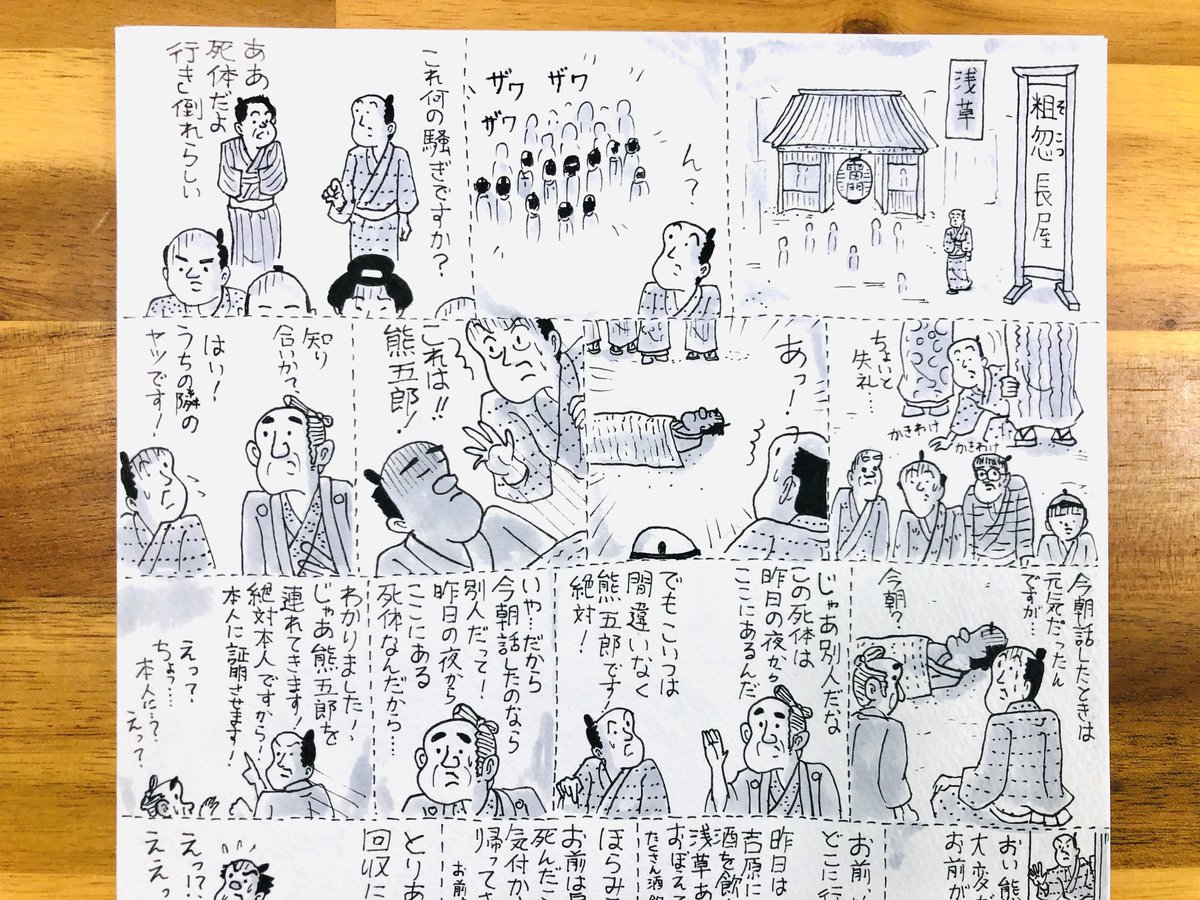 粗忽長屋
そこつ
浅草
雷門
ん？
ザワ
ザワ
ザワ
これ何の騒ぎですか？
ああ
死体だよ
行き倒れらしい
ちょいと
失礼…
かきわけ
かきわけ
あっ！
これは!!
熊五郎！
知り
合いか？
はい！
うちの隣の
ヤツです！
今朝話したときは
元気だったん
ですが…
今朝？
じゃあ別人だな
この死体は
昨日の夜から
ここにあるんだ
でもこいつは
間違いなく
熊五郎です！
絶対！
いや…だから
今朝話したのなら
別人だって！
昨日の夜から
ここにある
死体なんだから…
わかりました！
じゃあ熊五郎を
連れてきます！
絶対本人ですから！
本人に証明させます！
えって
ちょっ…
本人に…？
えって
おい熊
大変だ
お前が
お前、
どこに行
昨日は
吉原に
酒を飲
浅草あ
おぼえて
たくさん酒
ほらみ
お前は
死んだこ
気付か
帰ってき
お前
とりあ
回収に
えっ!?
ええっ